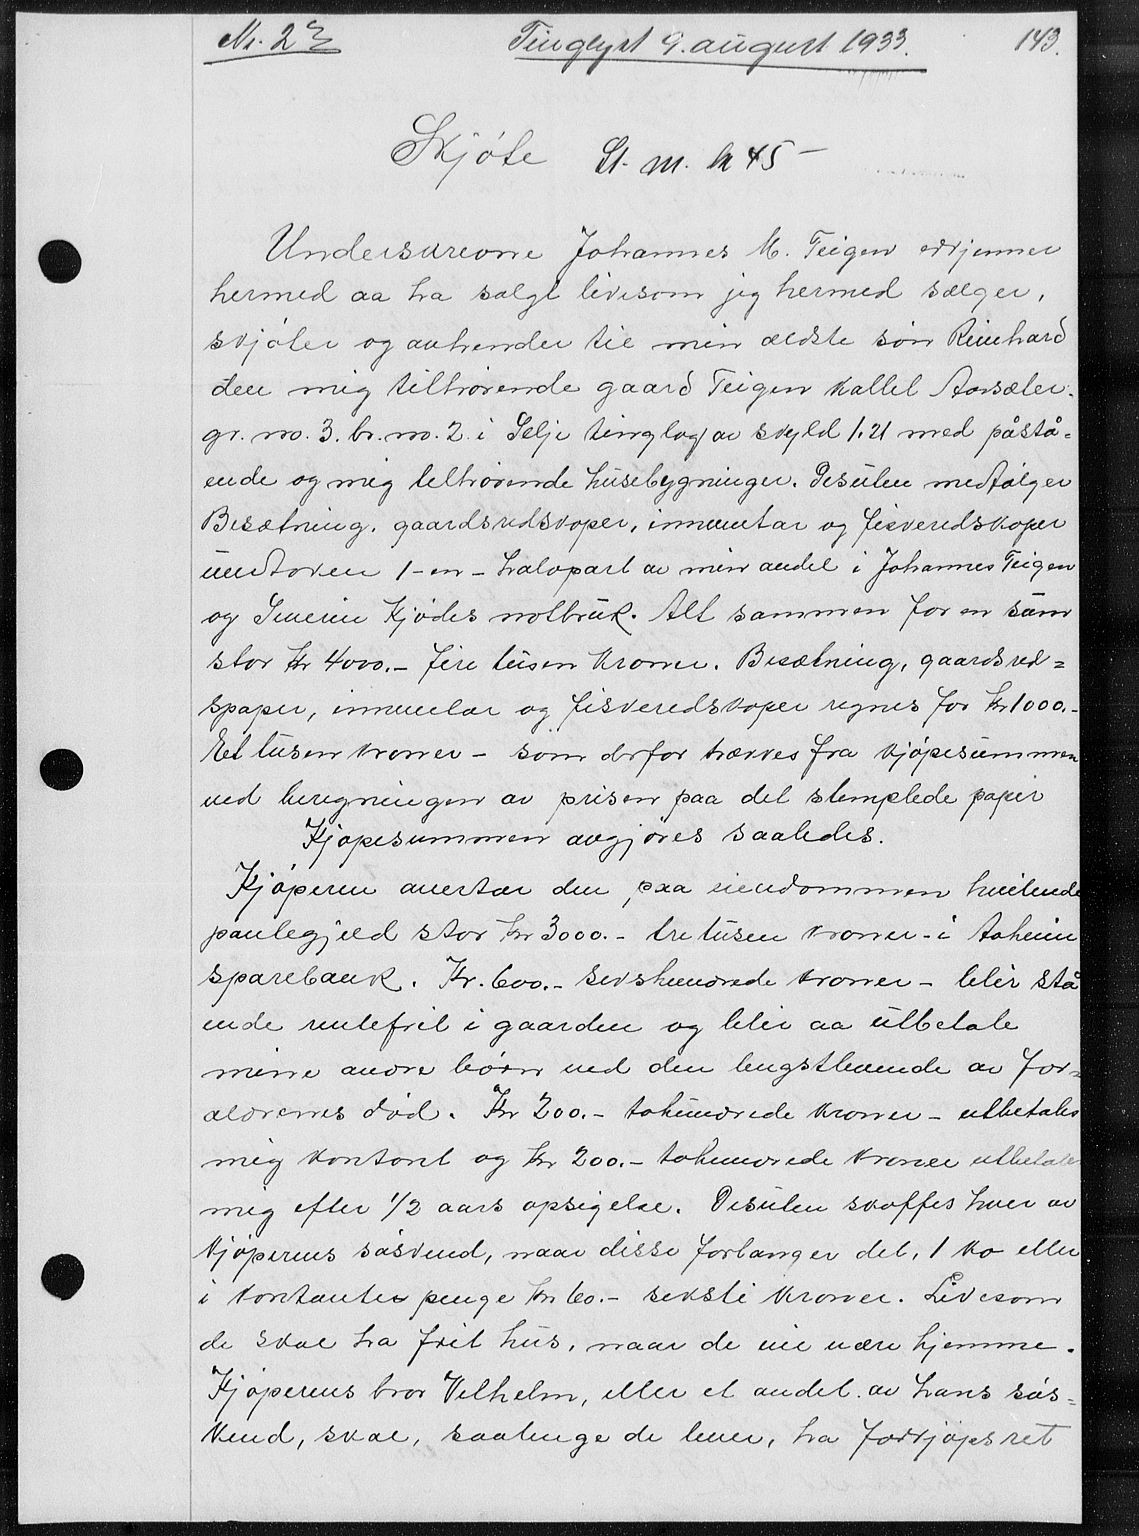 Nr. 23 Tinglyst 9. august 1933. 143.
Skjøte St. m. kr 45 –
Underskrevne Johannes M. Teigen erkjenner
hermed aa ha solgt likesom jeg hermed sælger,
skjøter og avhender til min ældste søn Reinhard
den mig tilhørende gaard Teigen kallet Aarsæter.
gr. no. 3. br. no. 2. i Selje tinglag av skyld 1.21 med påstå-
ende og mig tilhørende husebygninger. Desuten medfølger
Besætning, gaardsredskoper, inventar og fiskeredskoper
undtoken 1 - en - halvpart av min andel i Johannes Teigen
og Severin Kjødes notbruk. Alt sammen for en sum
stor kr 4000.- fire tusen kroner. Besætning, gaardsred-
spaper, inventar og fiskeredskoper regnes for kr 1000.-
Et tusen kroner - som derfor trækkes fra kjøpesummen
ved beregningen av prisen paa det stemplede papir
Kjøpesummen avgjøres saaledes.
Kjøperen overtar den, paa eiendommen hvilende
pantegjæld stor kr 3000.- tre tusen kroner - i Aaheim
sparebank. Kr. 600.- sekshundrede kroner - blir stå
ende rentefrit i gaarden og blir aa utbetale
mine andre børn ved den lengstlevende av for-
ældrenes død. Kr 200.- tohundrede kroner - utbetales
mig kontant og kr 200.- tohundrede kroner utbetales
mig efter 1/2 aars opsigelse. Desuten skaffes hver av
kjøperens søskend, naar disse forlanger det, 1 ko eller
i kontante penge kr 60.- seksti kroner. Likesom
de skal ha frit hus, naar de vil være hjemme.
Kjøperens bror Vilhelm, eller et andet av hans søs-
kend, skal, saalenge de lever, ha forkjøpsret